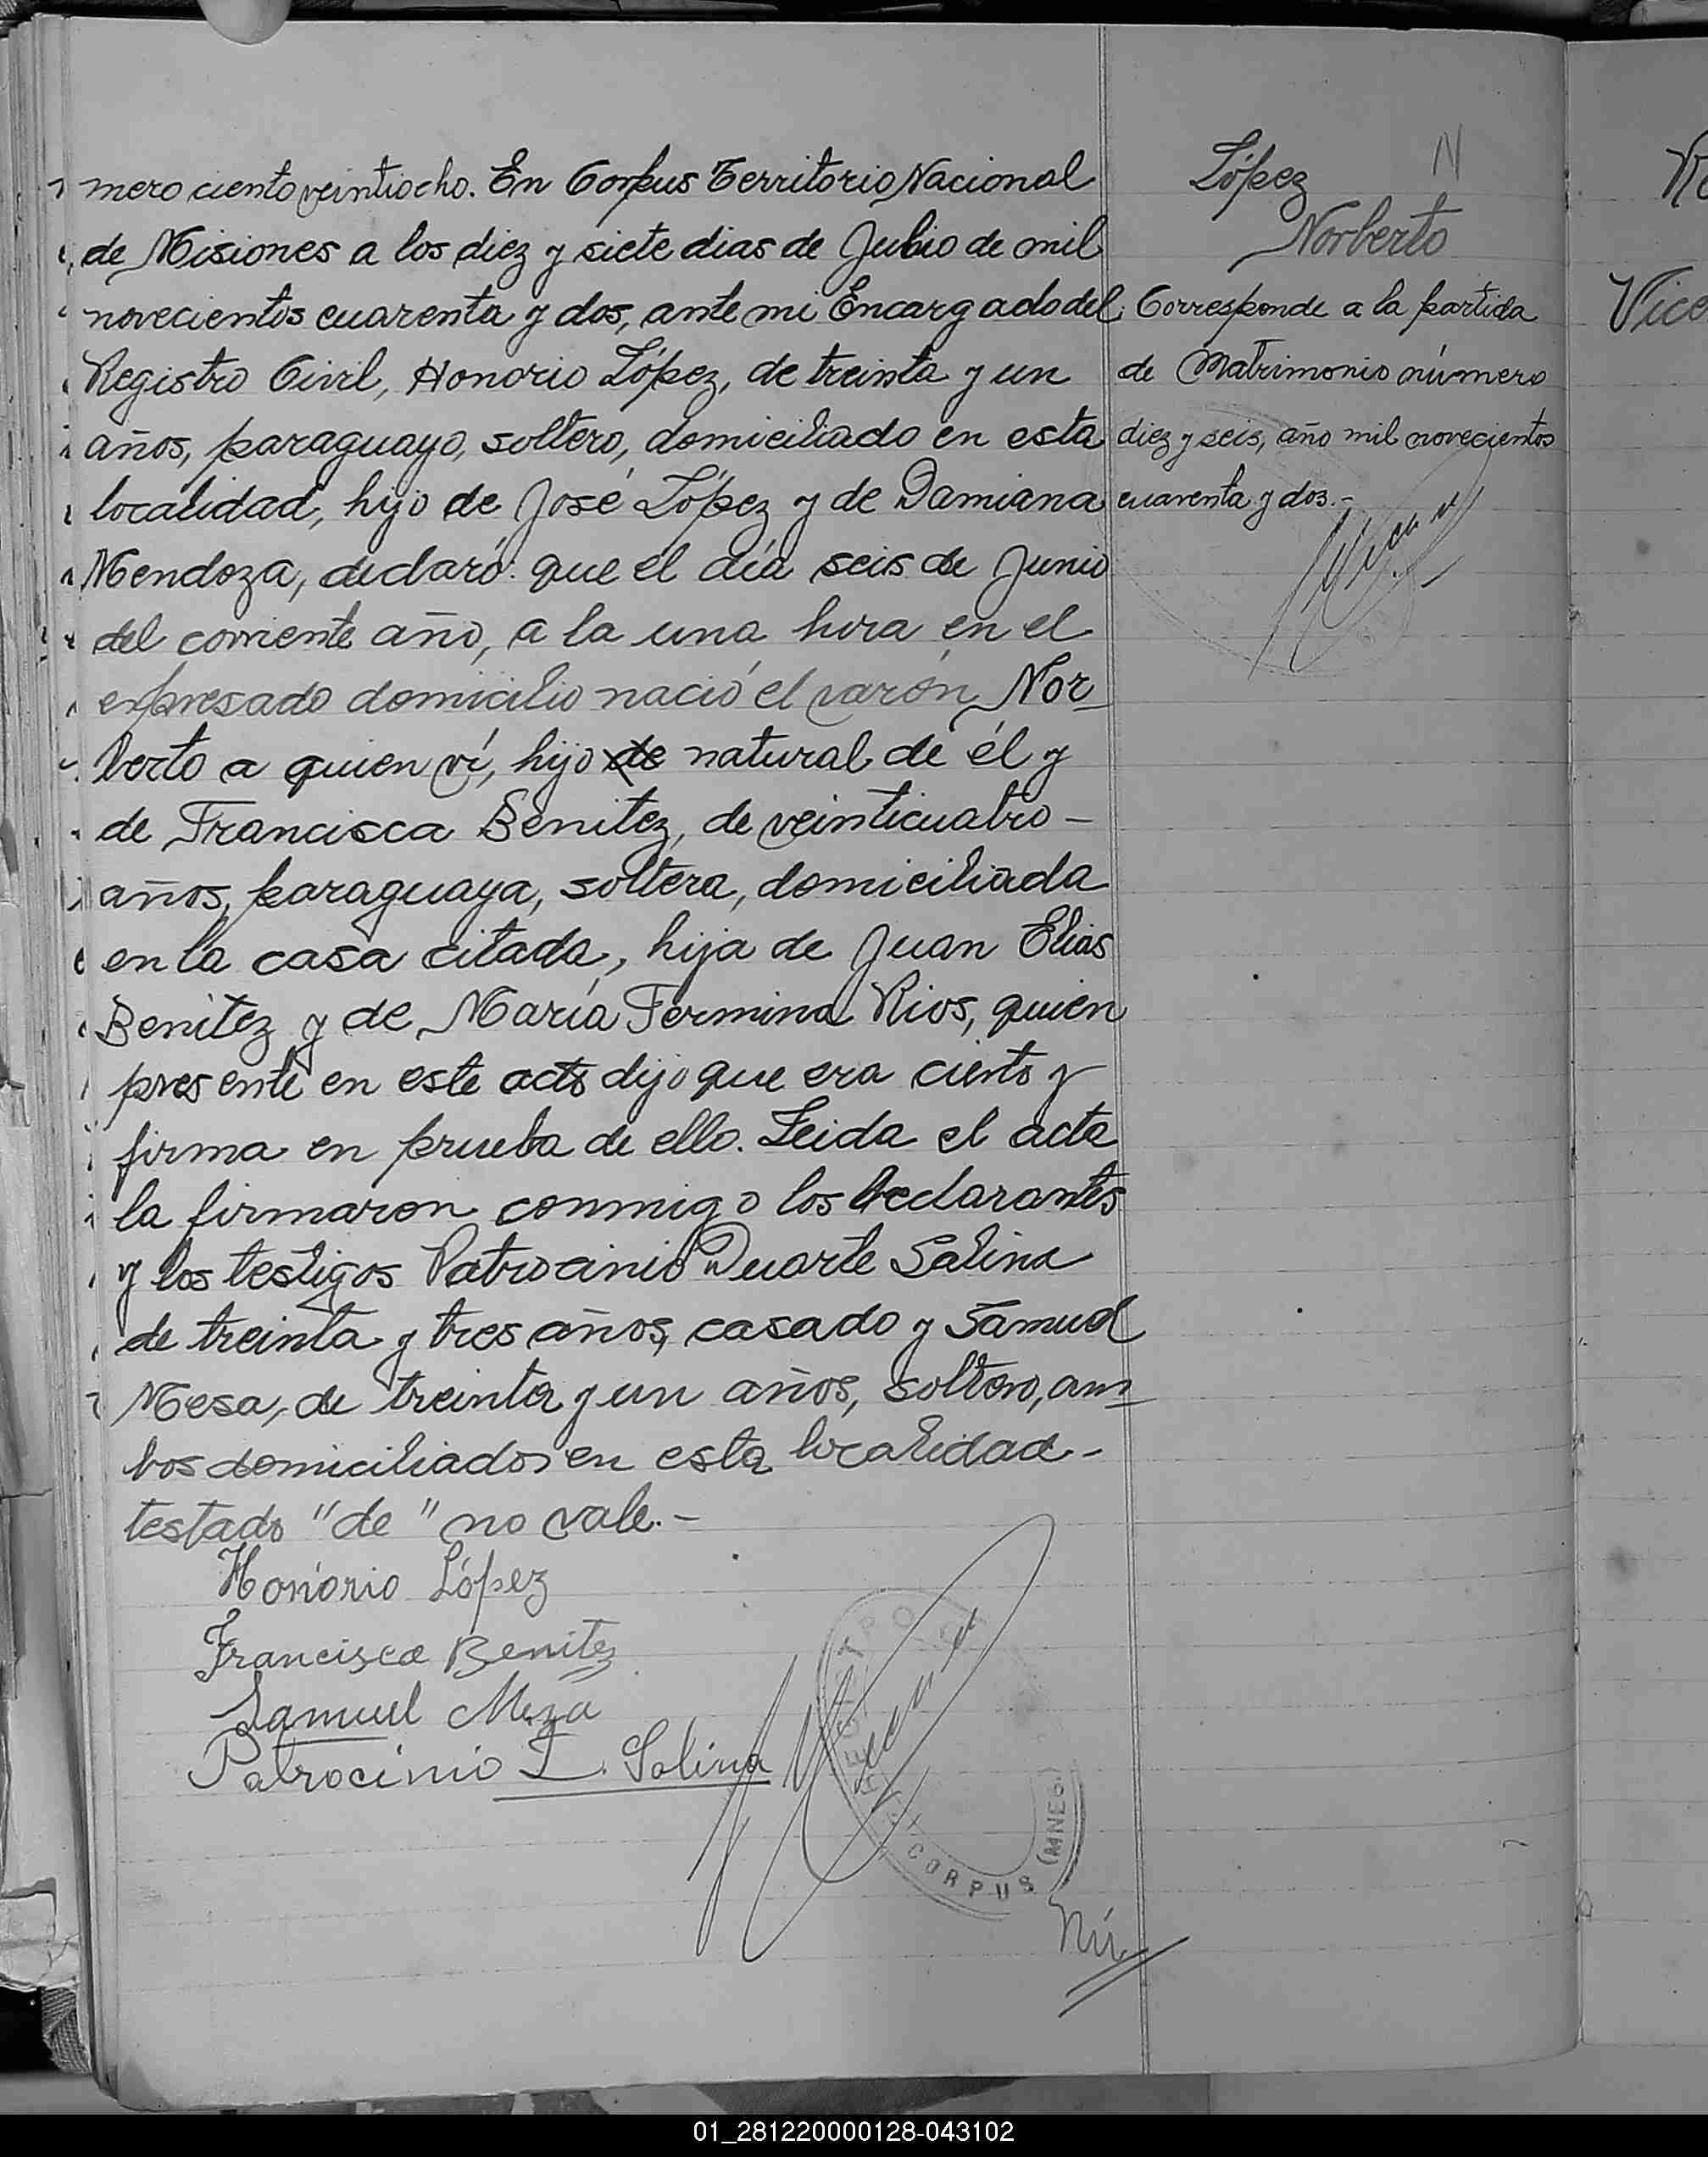 mero ciento veintiocho. En Corpus Territorio Nacional
de Misiones a los diez y siete dias de Julio de mil
novecientos cuarenta y dos, ante mi Encargado del
Registro Civil, Honorio López, de treinta y un
años, paraguayo, soltero, domiciliado en esta
localidad, hijo de José López y de Damiana
Mendoza, declaró: que el día seis de Junio
del corriente año, a la una hora en el
expresado domicilio nació el varón Nor-
berto a quien ví, hijo de natural de él y
de Francisca Benitez, de veinticuatro -
años, paraguaya, soltera, domiciliada
en la casa citada, hija de Juan Elias
Benitez y de María Fermina Rios, quien
presente en este acto dijo que era cierto y
firma en prueba de ello. Leida el acta
la firmaron conmigo los declarantes
y los testigos Patrocinio Duarte Salina
de treinta y tres años, casado y Samuel
Mesa, de treinta y un años, soltero, am-
bos domiciliados en esta localidad -
testado "de" no vale.-
Honorio López
Francisca Benitez
Samuel Meza
Patrocinio D. Salina
CORPUS (MNES.)
Nú
López N
Norberto
Corresponde a la partida
de Matrimonio número
diez y seis, año mil novecientos
cuarenta y dos.-
Vice
01_281220000128-043102